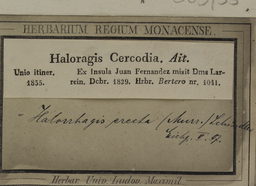 HERBARIUM REGIUM MONACENSE.
Haloragis Cercodia, Ait.
Unio itiner. 1835.
Ex Insula Juan Fernandez misit Dms Larrein. Dcbr. 1829. Hrbr. Bertero nr. 1041.
Halorrhagis erecta (Murr.) Schindler
Herbar. Univ. Ludov. Maximil.